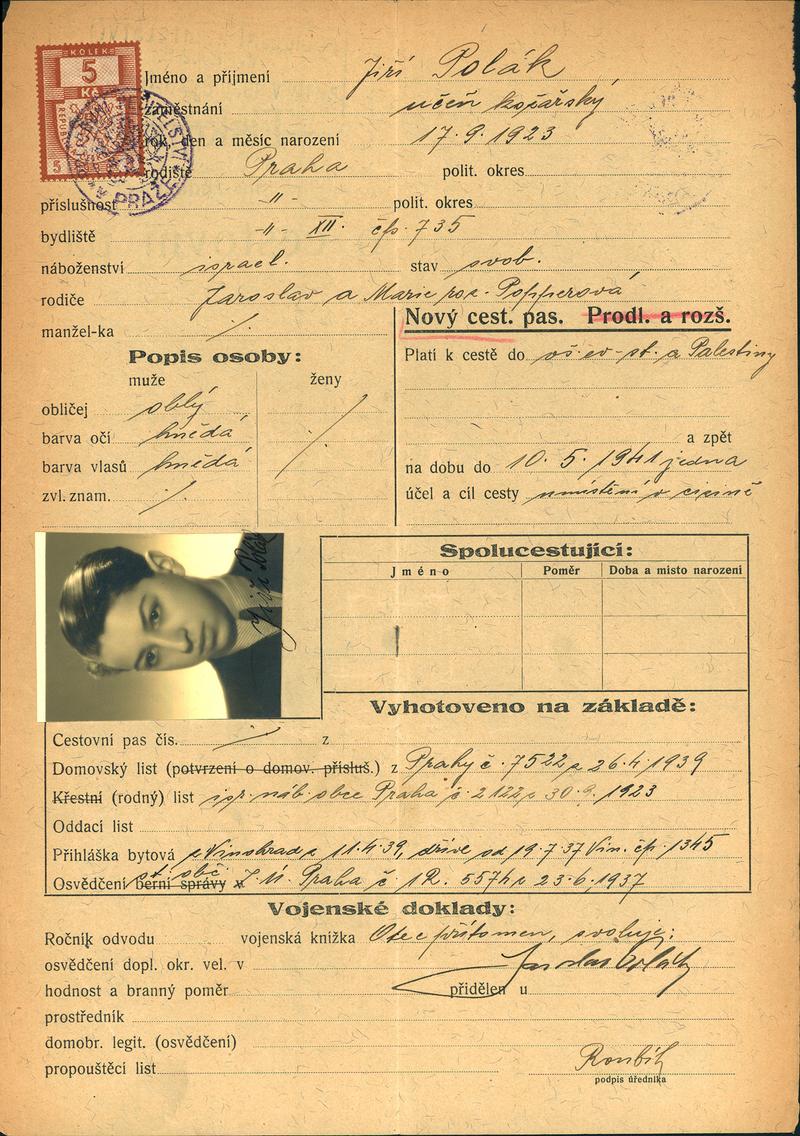 KOLEK
5
Kč
PRAZE
Jméno a příjmení Jiří Polák
zaměstnání učeň kožařský
rok, den a měsíc narození 17. 9. 1923
rodiště Praha polit. okres
příslušnost -"- polit. okres
bydliště -"- XII. čp. 735
náboženství israel. stav svob.
rodiče Jaroslav a Marie roz. Popperová
manžel-ka /.
Nový cest. pas. Prodl. a rozš.
Popis osoby:
muže ženy
obličej oblý
barva očí hnědá
barva vlasů hnědá
zvl. znam. /.
Platí k cestě do vš. ev. st. a Palestiny
a zpět
na dobu do 10. 5. 1941 jedna
účel a cíl cesty umístění v cizině
Jiří Polák
Spolucestující:
Jméno Poměr Doba a místo narození
Vyhotoveno na základě:
Cestovní pas čís. /. z
Domovský list (potvrzení o domov. přísluš.) z Prahy č. 7522 z 26. 4. 1939
Křestní (rodný) list isr. náb. obce Praha č. 2122 z 30. 9. 1923
Oddací list
Přihláška bytová z Vinohrad z 11. 4. 39, dříve od 19. 7. 37 Vin. čp. 1345
Osvědčení berní správy v st. obč. Z. Ú. Praha č. 12. 5574 z 23. 6. 1937
Vojenské doklady:
Ročník odvodu vojenská knížka Otec přítomen, svoluje:
osvědčení dopl. okr. vel. v Jaroslav Polák
hodnost a branný poměr přidělen u
prostředník
domobr. legit. (osvědčení)
propouštěcí list
podpis úředníka